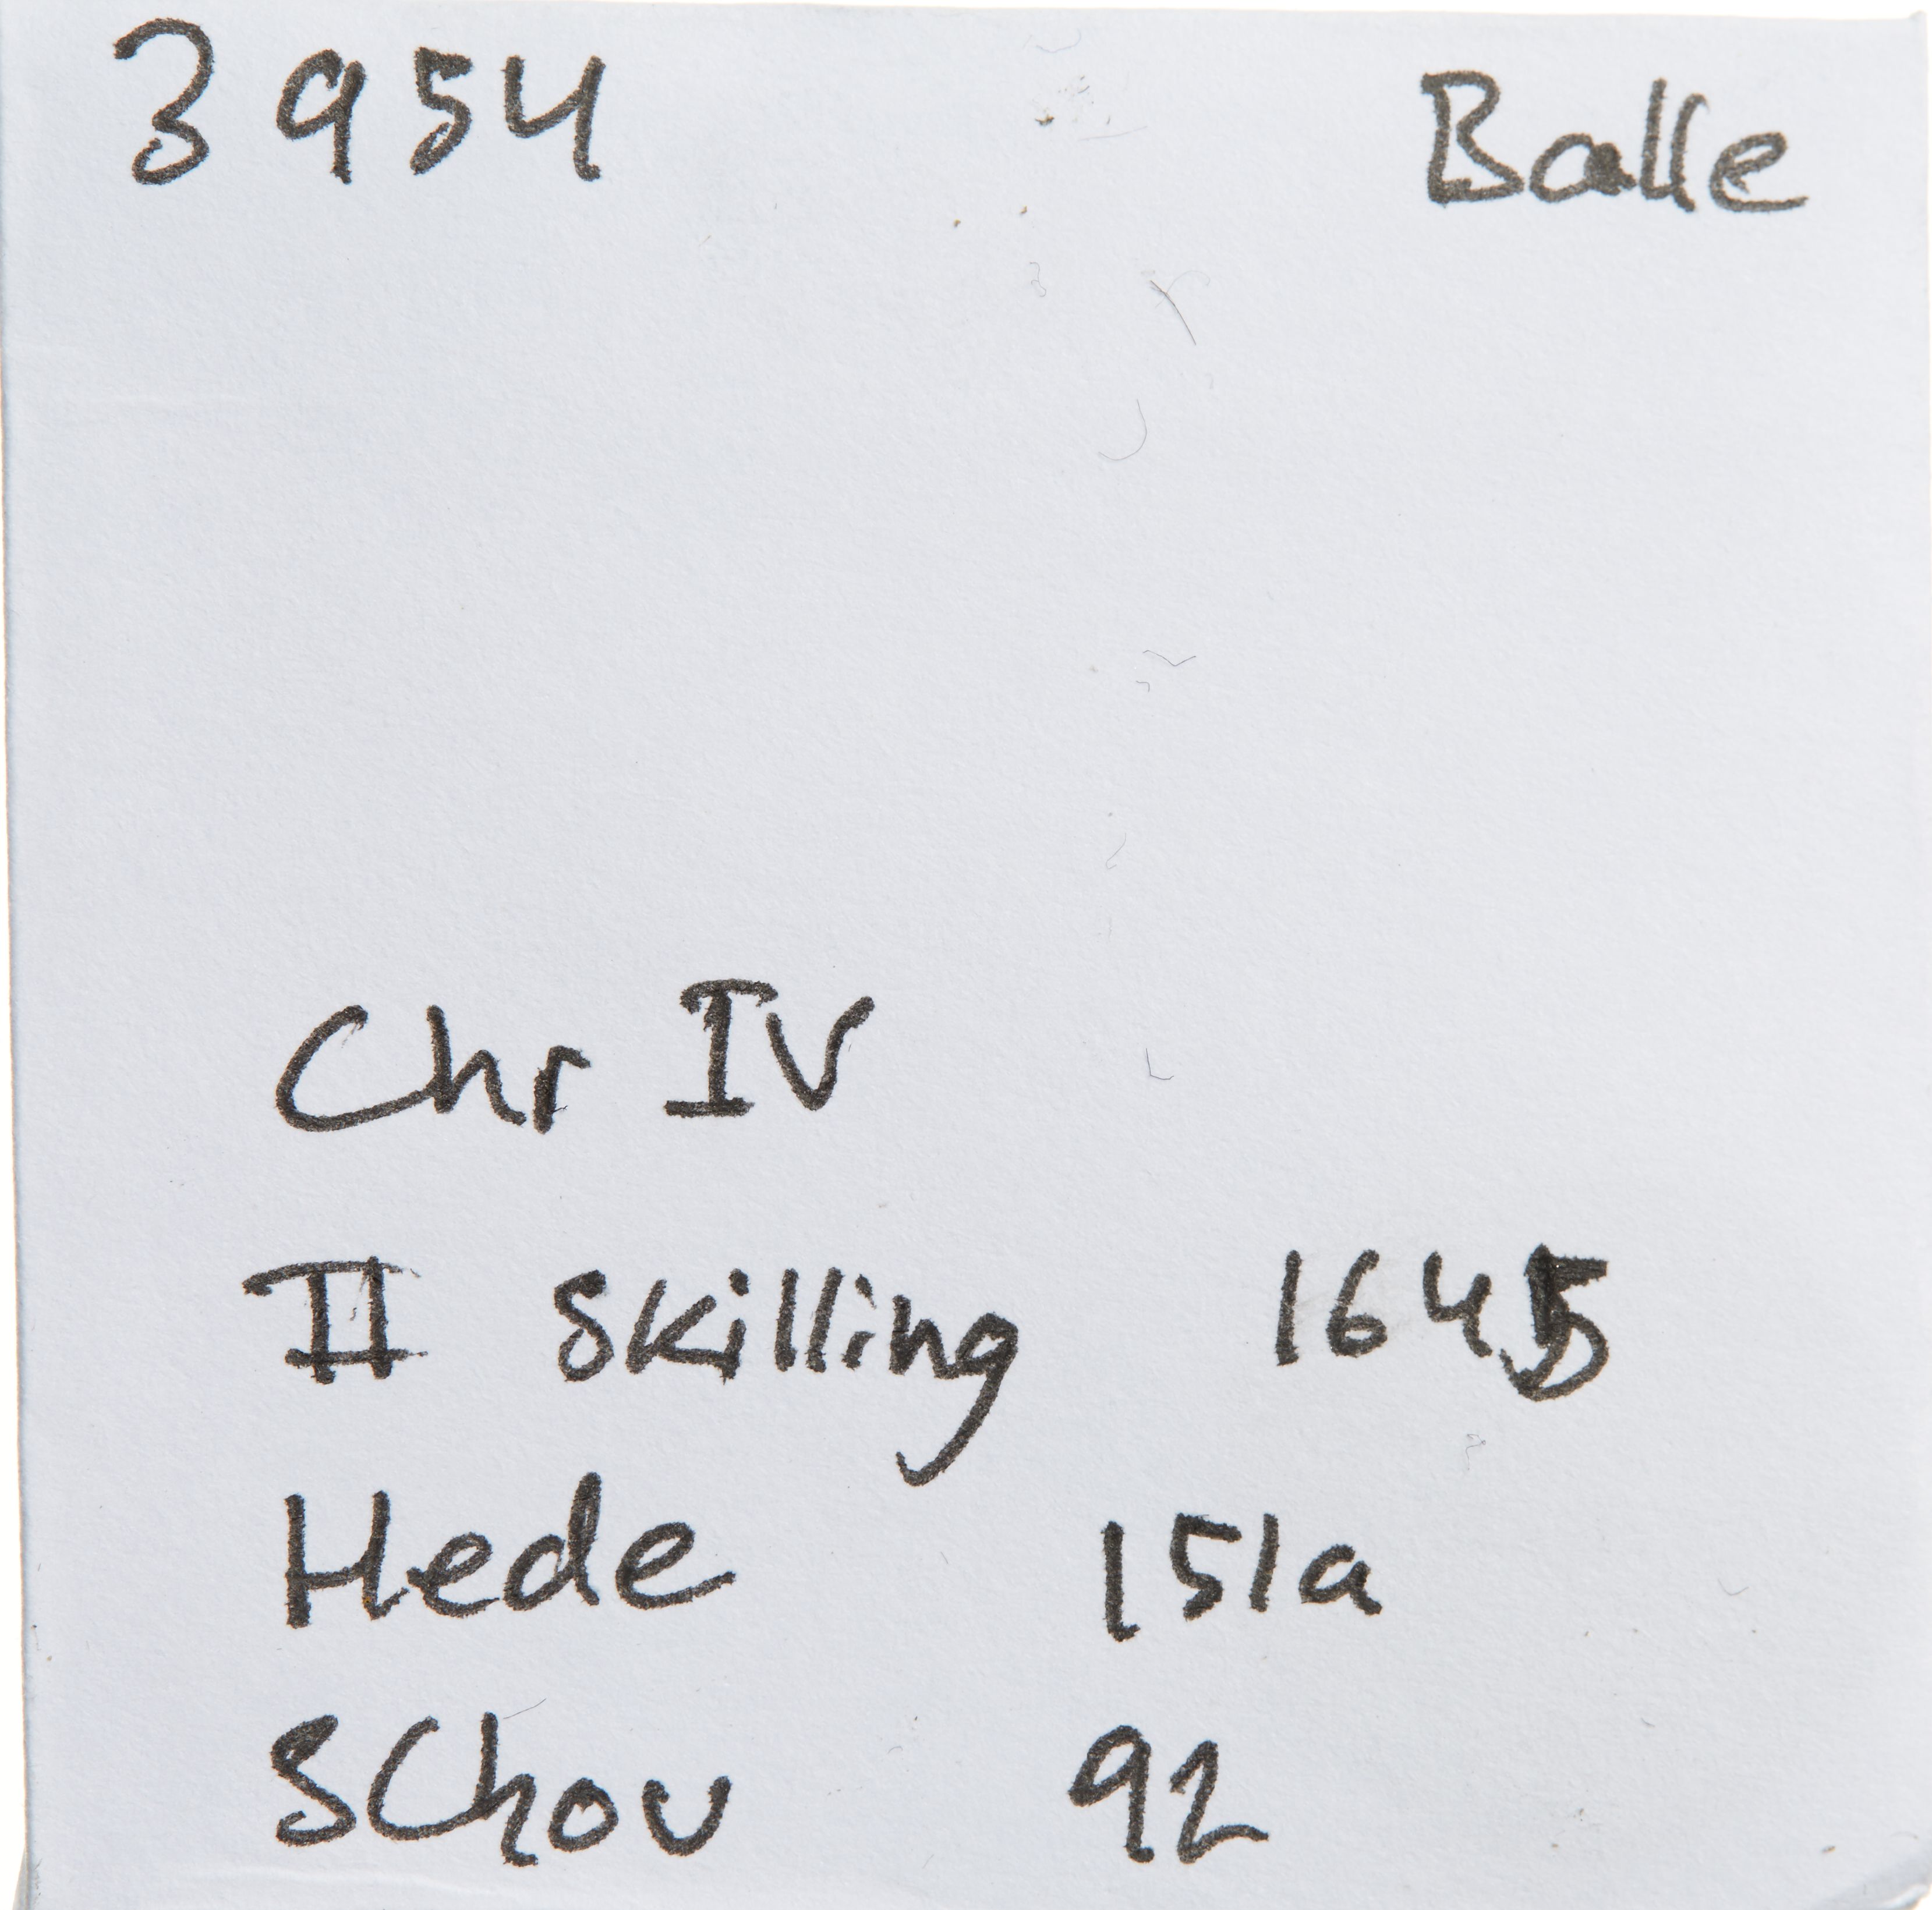 3954 Balle
Chr IV
II Skilling 1645
Hede 151a
SChou 92